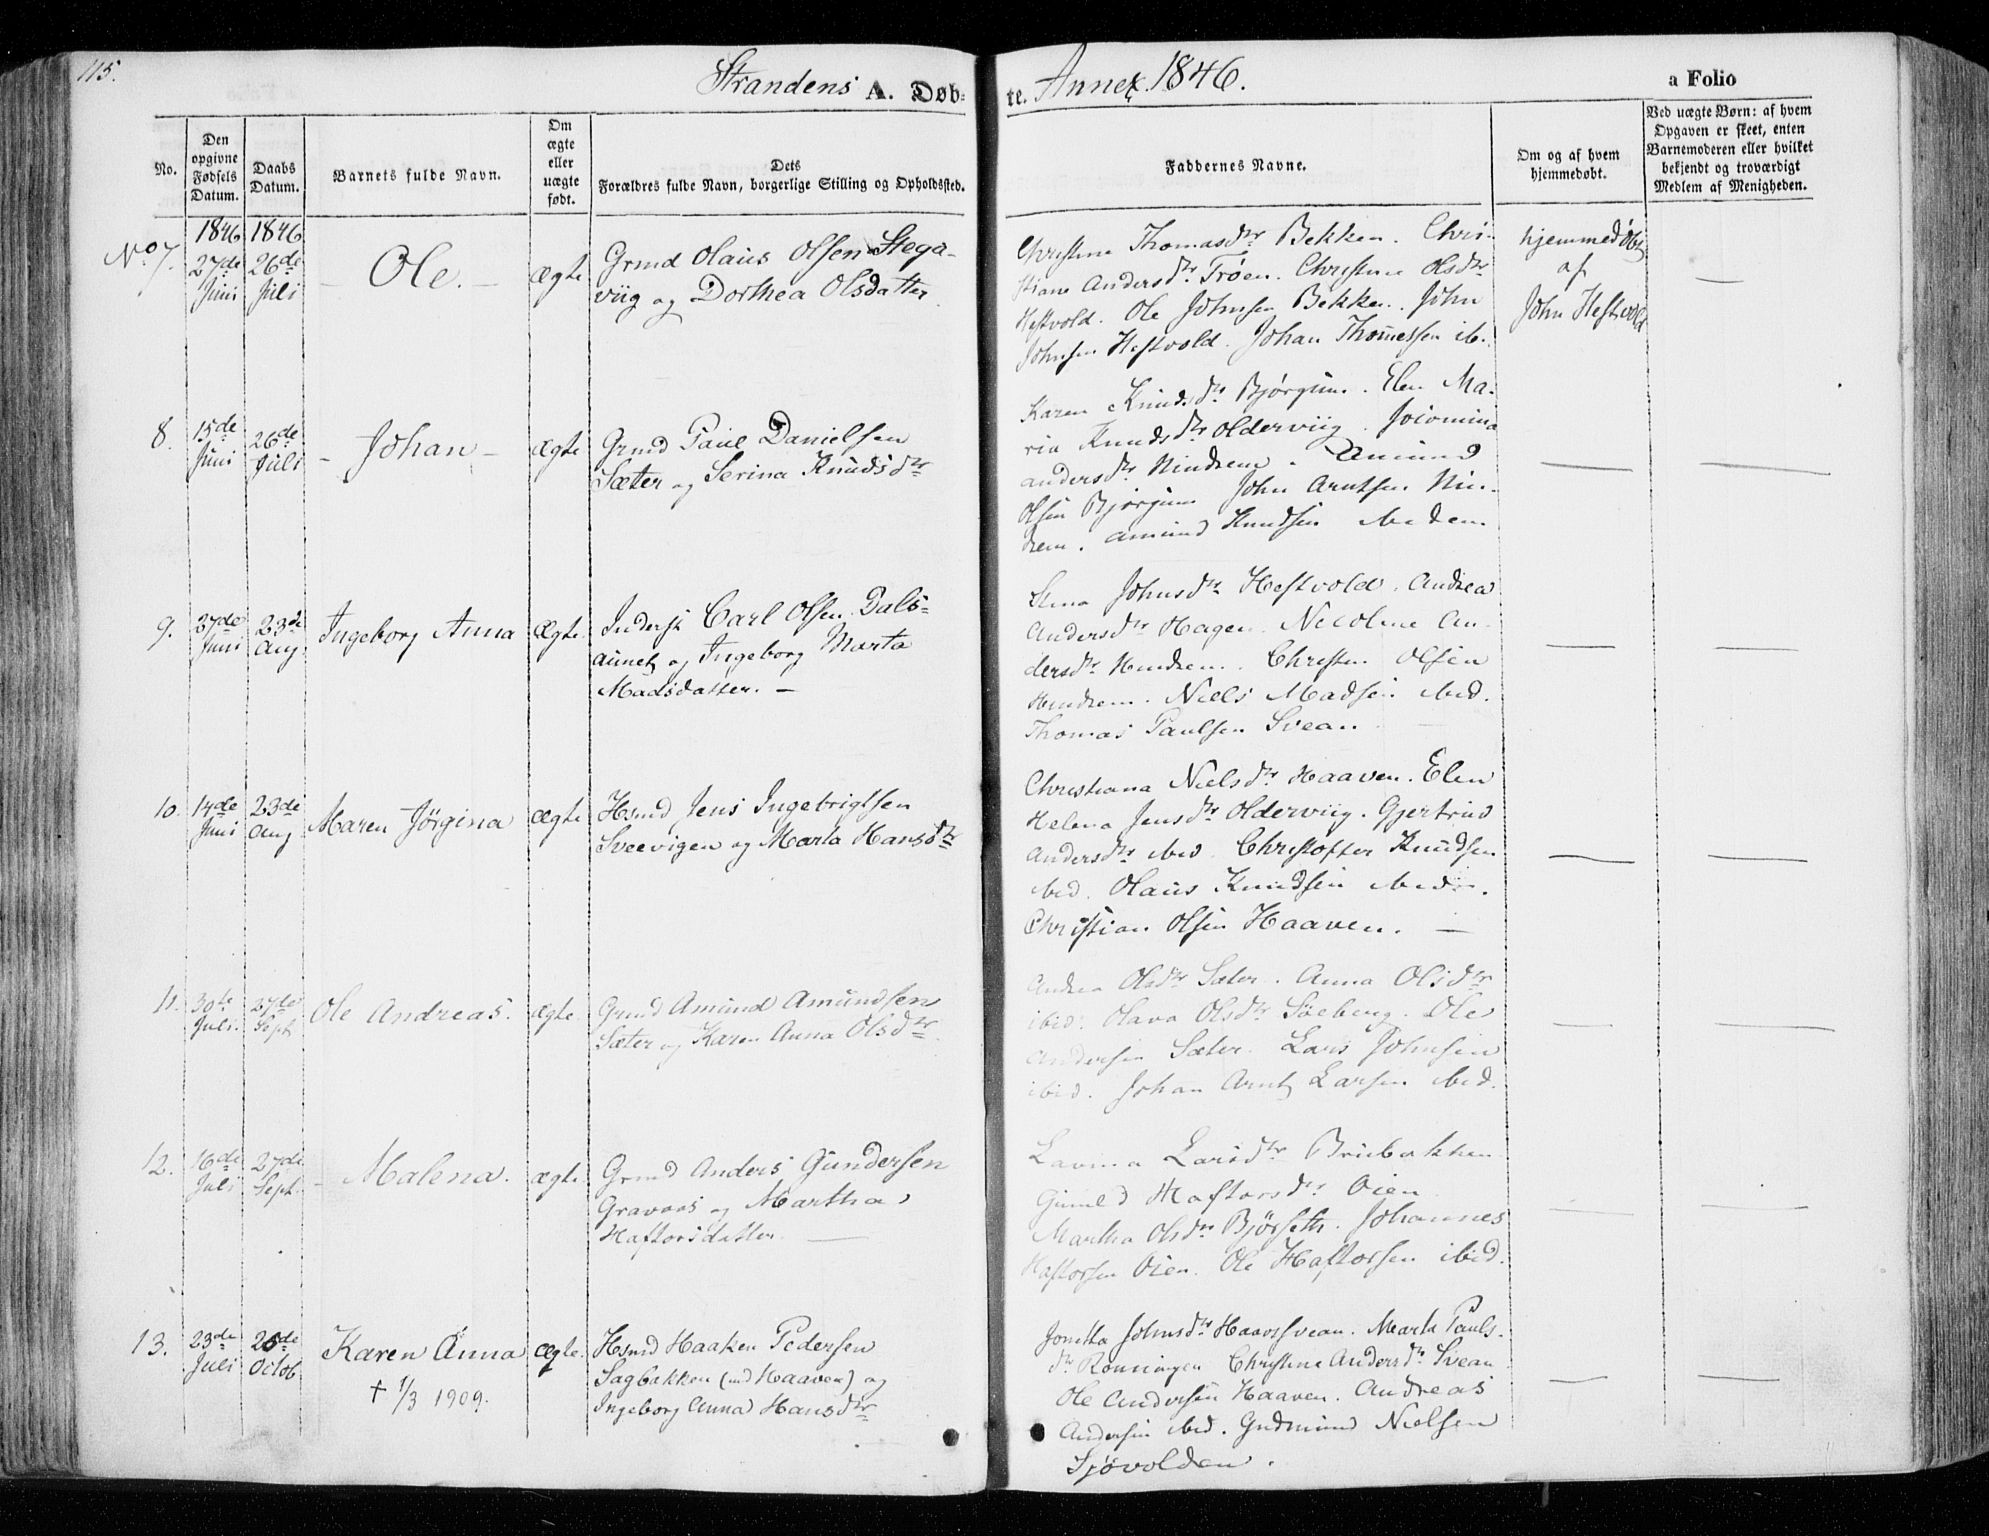 115.
Strandens A. Døb= te. Annex 1846.
a Folio
No.
Den opgivne Fødsels Datum.
Daabs Datum.
Barnets fulde Navn.
Om ægte eller uægte født.
Dets Forældres fulde Navn, borgerlige Stilling og Opholdssted.
Faddernes Navne.
Om og af hvem hjemmedøbt.
Ved uægte Børn: af hvem Opgaven er skeet, enten Barnemoderen eller hvilket bekjendt og troværdigt Medlem af Menigheden.
1846 1846
No 7. 27de Juni 26de Juli
Ole.
ægte
Grmd Olaus Olsen Stega-
viig og Dorthea Olsdatter
Christine Thomasdtr Bekken. Chri-
stiane Andersdtr Trøen. Christine Olsdtr
Hestvold. Ole Johnsen Bekken. John
Johnsen Hestvold. Johan Thomessen ib.
hjemmedøbt
af
John Hestvold
—
8. 15de Juni 26de Juli
Johan
ægte
Grmd Paul Danielsen
Sæter og Serina Knudsdtr
Karen Knudsdtr Bjørgum. Elen Ma-
ria Knudsdtr Olderviig.
Andersdtr Amund
Olsen Bjørgum John Arntsen
Amund Knudsen ibidem
— —
9. 27de Juni 23de Aug
Ingeborg Anna
Ægte
Inderst Carl Olsen Dals-
aunet og Ingeborg Marta
Madsdatter. —
Johnsdtr Hestvold. Andrea
Andersdtr Hagen. Nicoline An-
dersdtr Christen Olsen
Niels Madsen ibid.
Thomas Paulsen Svean
— —
10. 14de Juni 23de Aug
Maren Jørgina
Ægte
Hsmd Jens Ingebrigtsen
Sveevigen og Marta Hansdtr
Christiana Nielsdtr Haaven. Elen
Helena Jensdtr Olderviig. Gjertrud
Andersdtr ibid. Christoffer Knudsen
ibid. Olaus Knudsen ibid.
Christian Olsen Haaven. —
— —
11. 30te Juli. 27de Sept
Ole Andreas.
ægte
Grmd Amund Amundsen
Sæter og Karen Anna Olsdtr
Andrea Olsdtr Sæter. Anna Olsdtr
ibid. Olava Olsdtr Søeberg. Ole
Andersen Sæter. Lars Johnsen
ibid. Johan Arnt Larsen ibid.
— —
12. 16de Juli 27de Sept.
Malena.
ægte
Grmd Anders Gundersen
Gravaas og Martha
Haftorsdatter. —
Larsdtr
Haftorsdtr Oien
Martha Olsdtr Bjørseth. Johannes
Haftorsen Oien. Ole Haftorsen ibid.
— —
13. 23de Juli 26de Octob
Karen Anna
† 1/3 1909.
ægte.
Hsmd Haaken Pedersen
Sagbakken (und Haaven) og
Ingeborg Anna Hansdtr
Jonetta Johnsdtr Haavssvean. Marta Pauls-
dtr Rønningen Christine Andersdtr Svean
Ole Andersen Haaven. Andreas
Andersen ibid. Gudmund Nielsen
Sjøvolden.
— —